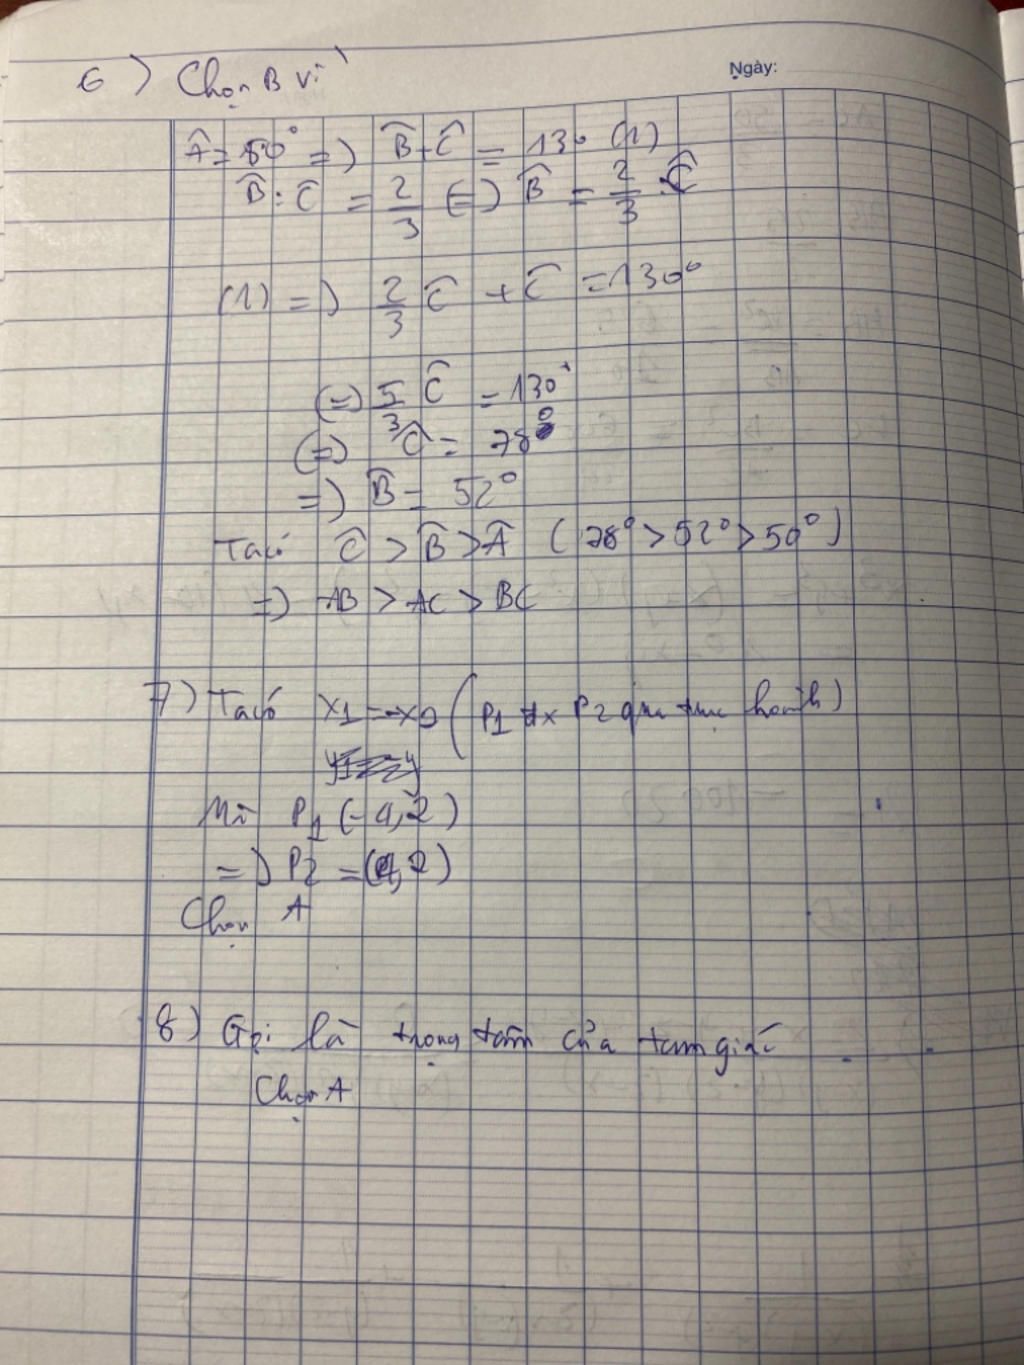 Ngày:
6) Chọn B vì
Â = 50° => B̂ + Ĉ = 130 (1)
B̂ : Ĉ = 2/3 (=) B̂ = 2/3 . Ĉ
(1) => 2/3 Ĉ + Ĉ = 130°
(=) 5/3 Ĉ = 130°
(=) Ĉ = 78°
=> B̂ = 52°
Ta có Ĉ > B̂ > Â (78° > 52° > 50°)
=> AB > AC > BC
7) Ta có X1 = -X2 (P1 đx P2 qua trục hoành)
Mà P1 (-4,2)
=> P2 = (4,2)
Chọn A
8) Gọi là trọng tâm của tam giác
Chọn A